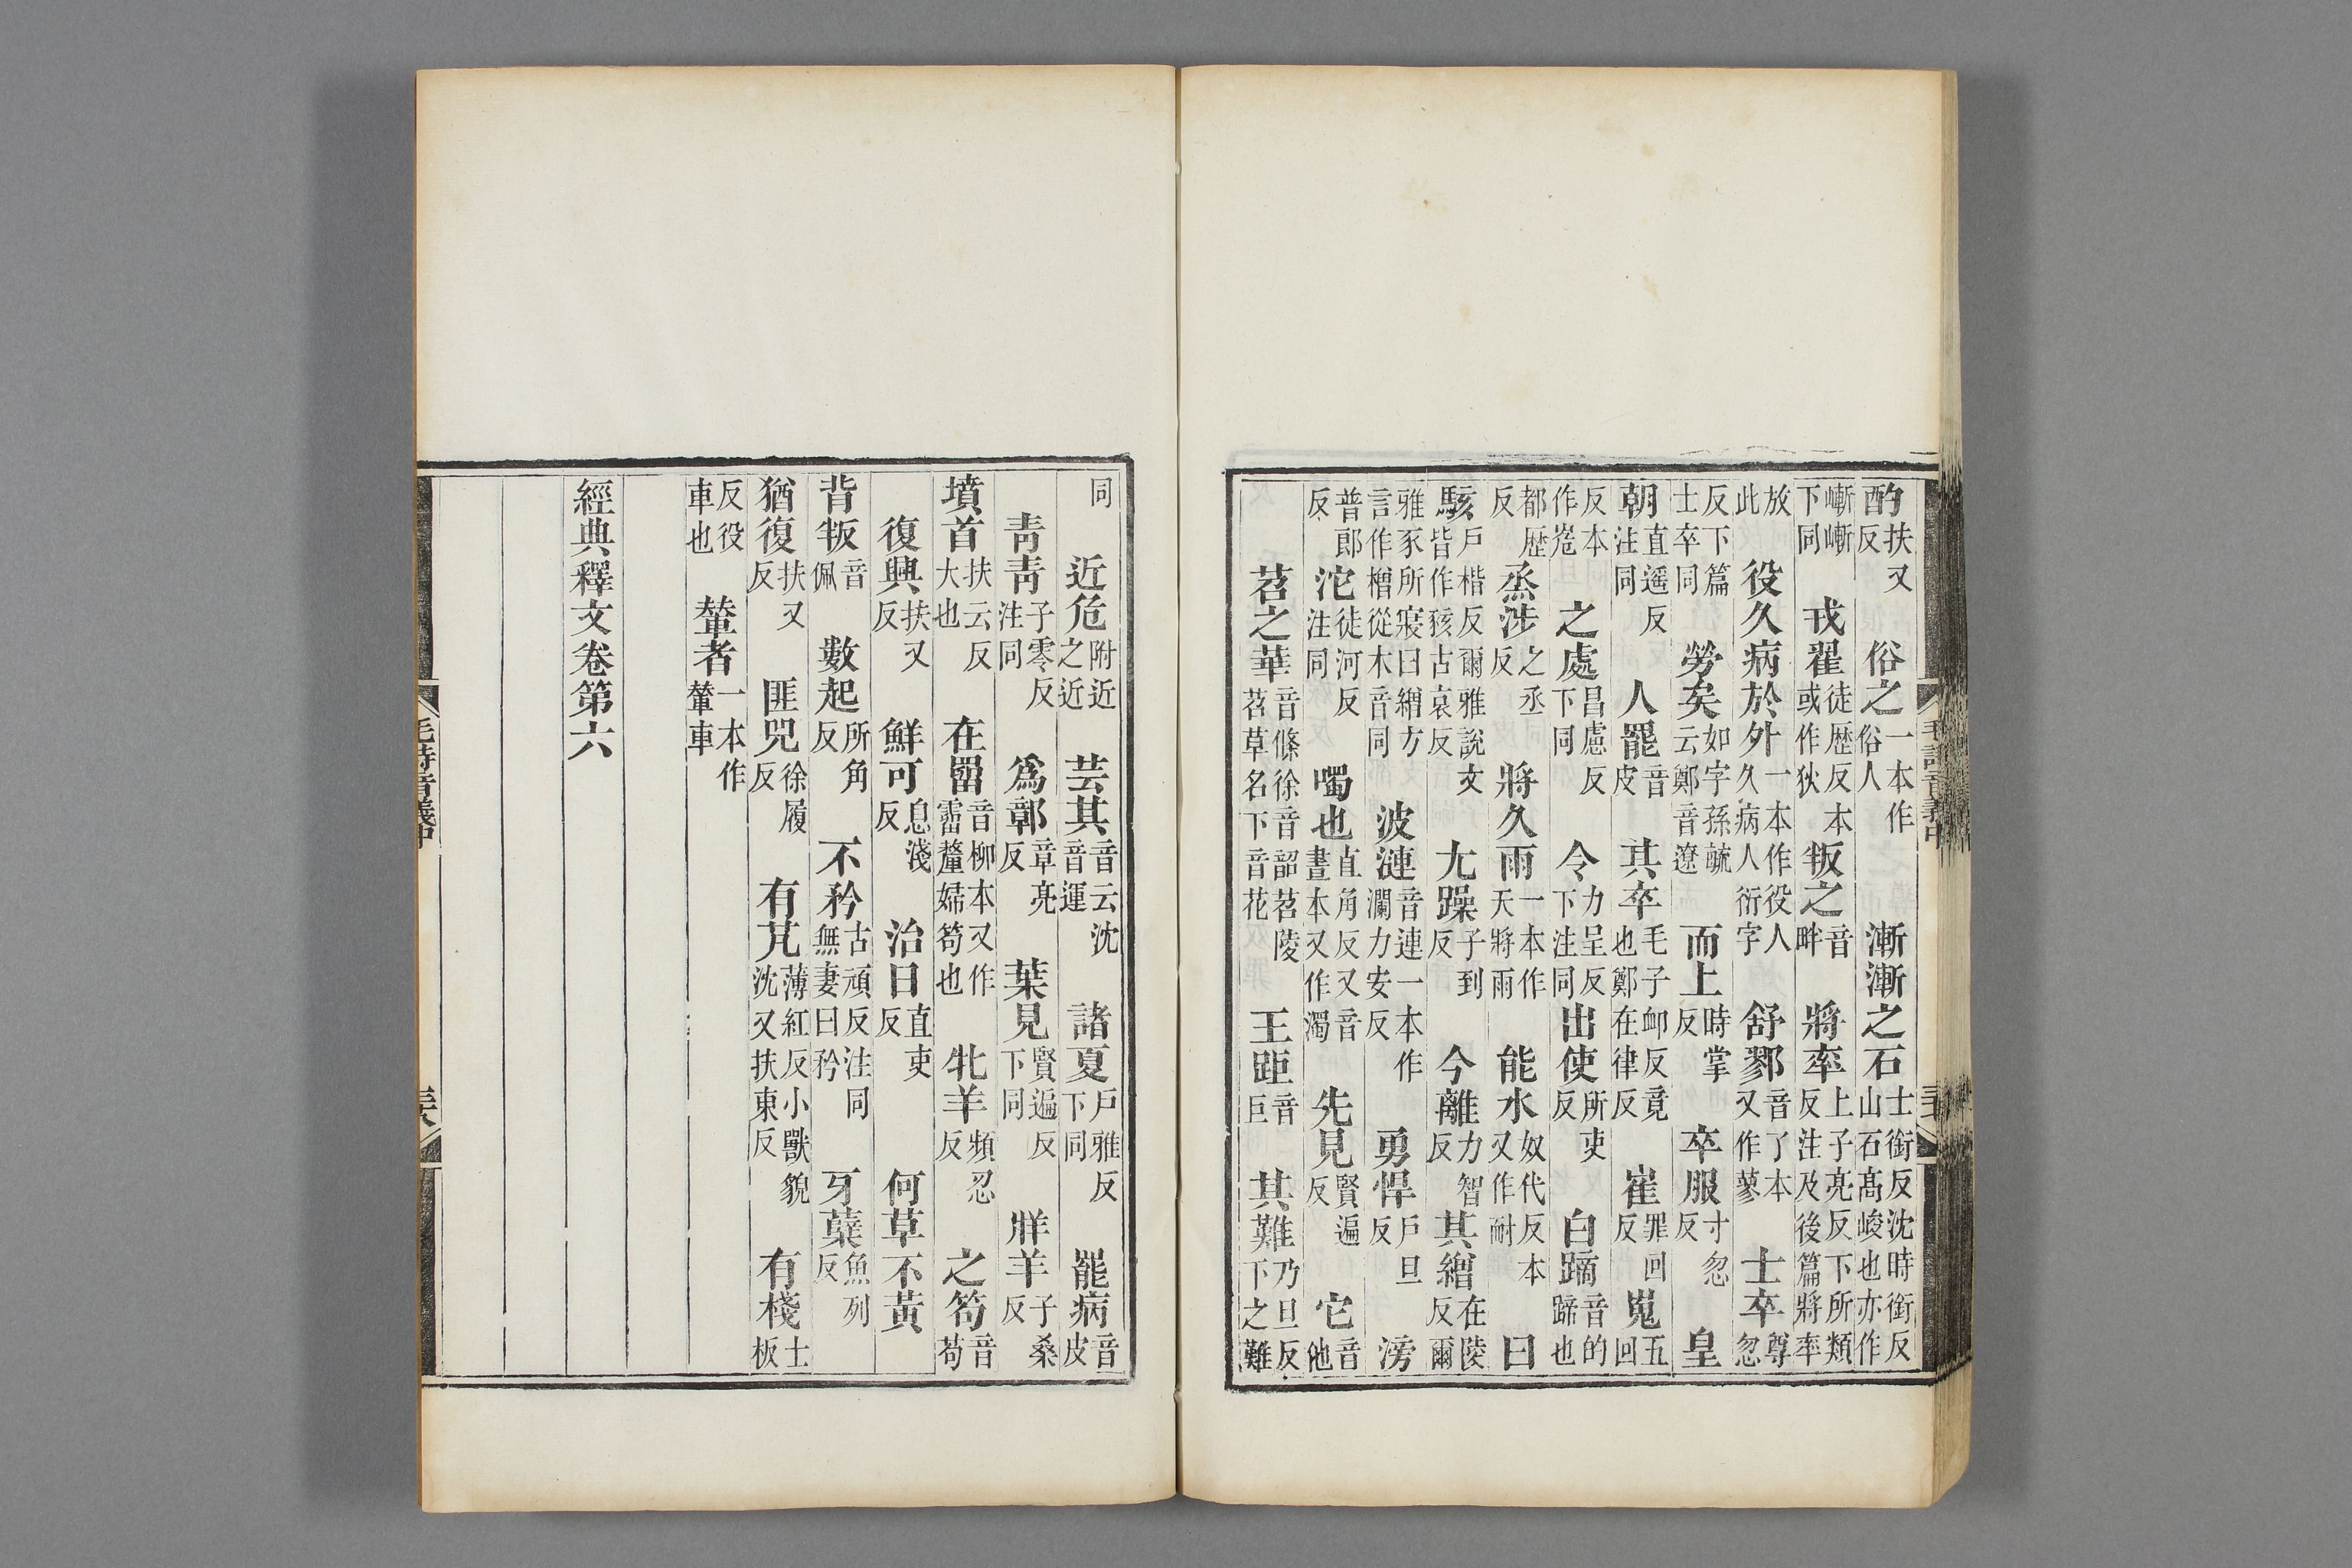 酌扶又反 俗之一本作俗人 漸漸之石士銜反沈時銜反山石髙峻也亦作
嶃嶃下同 戎翟徒歴反本或作狄 叛之音畔 將率上子亮反下所類反注及後篇將率
放此 役久病於外一本作役人久病人衍字 舒鄝音了本又作蓼 士卒尊忽
反下篇士卒同 勞矣如字孫毓云鄭音遼 而上時掌反 卒服寸忽反 皇
朝直遥反注同 人罷音皮 其卒毛子䘏反竟也鄭在律反 崔罪回反 嵬五回
反本作峞 之處昌慮反下同 令力呈反下注同 出使所吏反 白蹢音的蹄也
都歴反 烝涉之丞反 將久雨一本作天將雨 能水奴代反本又作耐 曰
駭戸楷反爾雅說文皆作豥古哀反 尢躁子到反 今離力智反 其繒在陵反爾
雅豕所寢曰繒方言作橧從木音同 波漣音連一本作瀾力安反 勇悍戸旦反 滂
普郎反 沱徒河反注同 噣也直角反又音晝本又作濁 先見賢遍反 它音他
苕之華音條徐音韶苕陵苕草名下音花 王距音巨 其難乃旦反下之難
同 近危附近之近 芸其音云沈音運 諸夏戸雅反下同 罷病音皮
青青子零反注同 爲鄣章亮反 葉見賢遍反下同 牂羊子桑反
墳首扶云反大也 在罶音柳本又作霤釐婦笱也 牝羊頻忍反 之笱音苟
復興扶又反 鮮可息淺反 治日直吏反 何草不黄
背叛音佩 數起所角反 不矜古頑反注同無妻曰矜 牙蘖魚列反
猶復扶又反 匪兕徐履反 有芃薄紅反小獸貌沈又扶東反 有棧士板
反役車也 輦者一本作輦車
經典釋文卷第六
毛詩音義中
三六